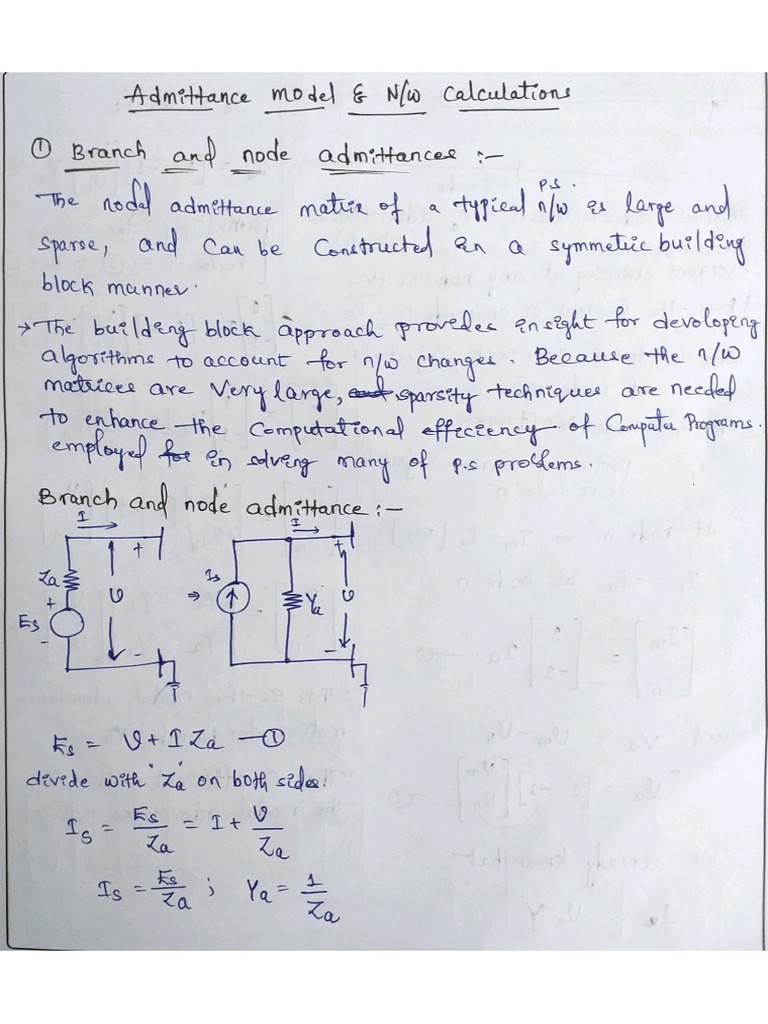 Admittance model & N/w Calculations
① Branch and node admittances :-
P.S.
The nodal admittance matrix of a typical n/w is large and
sparse, and can be constructed in a symmetric building
block manner.
→ The building block approach provides insight for devoloping
algorithms to account for n/w changes. Because the n/w
matrices are very large, sparsity techniques are needed
to enhance the computational efficiency of Computer Programs.
employed in solving many of p.s problems.
Branch and node admittance :-
I
I
+
+
Za
+
Es
-
v
-
⇒
Is
Ya
v
-
Es = v + I Za —①
divide with 'Za' on both sides.
Is = Es/Za = I + v/Za
Is = Es/Za ; Ya = 1/Za